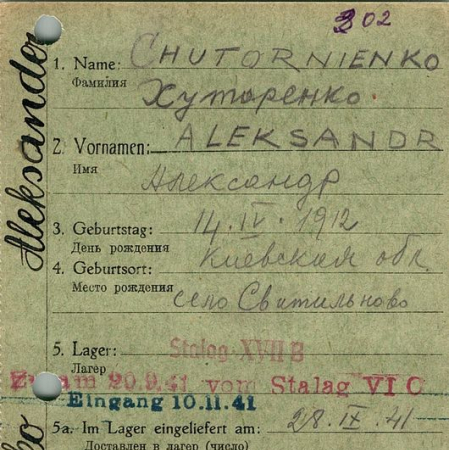 302
Aleksander
1. Name: CHUTORNIENKO
Фамилия
Хуторенко.
2. Vornamen: ALEKSANDR
Имя
Александр
3. Geburtstag: 14.IV.1912
День рождения
Киевская обл.
4. Geburtsort:
Место рождения
село Свитильново
5. Lager: Stalag XVII B
Лагер
am 20.9.41 vom Stalag VI C
Eingang 10.11.41
5a. Im Lager eingeliefert am: 28.IX.41
Доставлен в лагер (число)